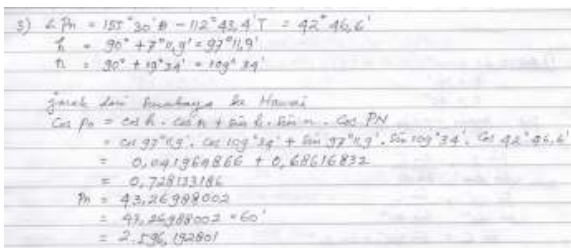 3) ∠ Pn = 155°30' B - 112°43,4' T = 42°46,6'
h = 90° + 7°11,9' = 97°11,9'
n = 90° + 19°34' = 109°34'
Jarak dari Surabaya ke Hawai
Cos pn = cos h . cos n + sin h . sin n . Cos PN
= cos 97°11,9' . cos 109°34' + sin 97°11,9' . sin 109°34' . Cos 42°46,6'
= 0,041964866 + 0,68616832
= 0,728133186
Pn = 43,26988002
= 43,26988002 × 60'
= 2.596,192801